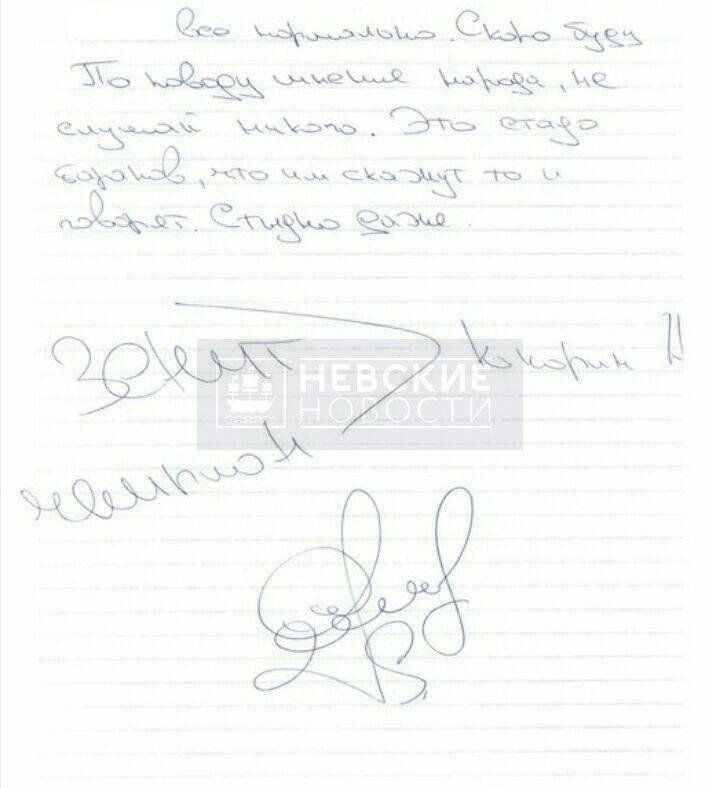 все нормально. Скоро буду
По поводу мнение народа, не
слушай никого. Это стадо
баранов, что им скажут то и
говорят. Стыдно даже.
Зенит
Кокорин
НЕВСКИЕ
НОВОСТИ
чемпион